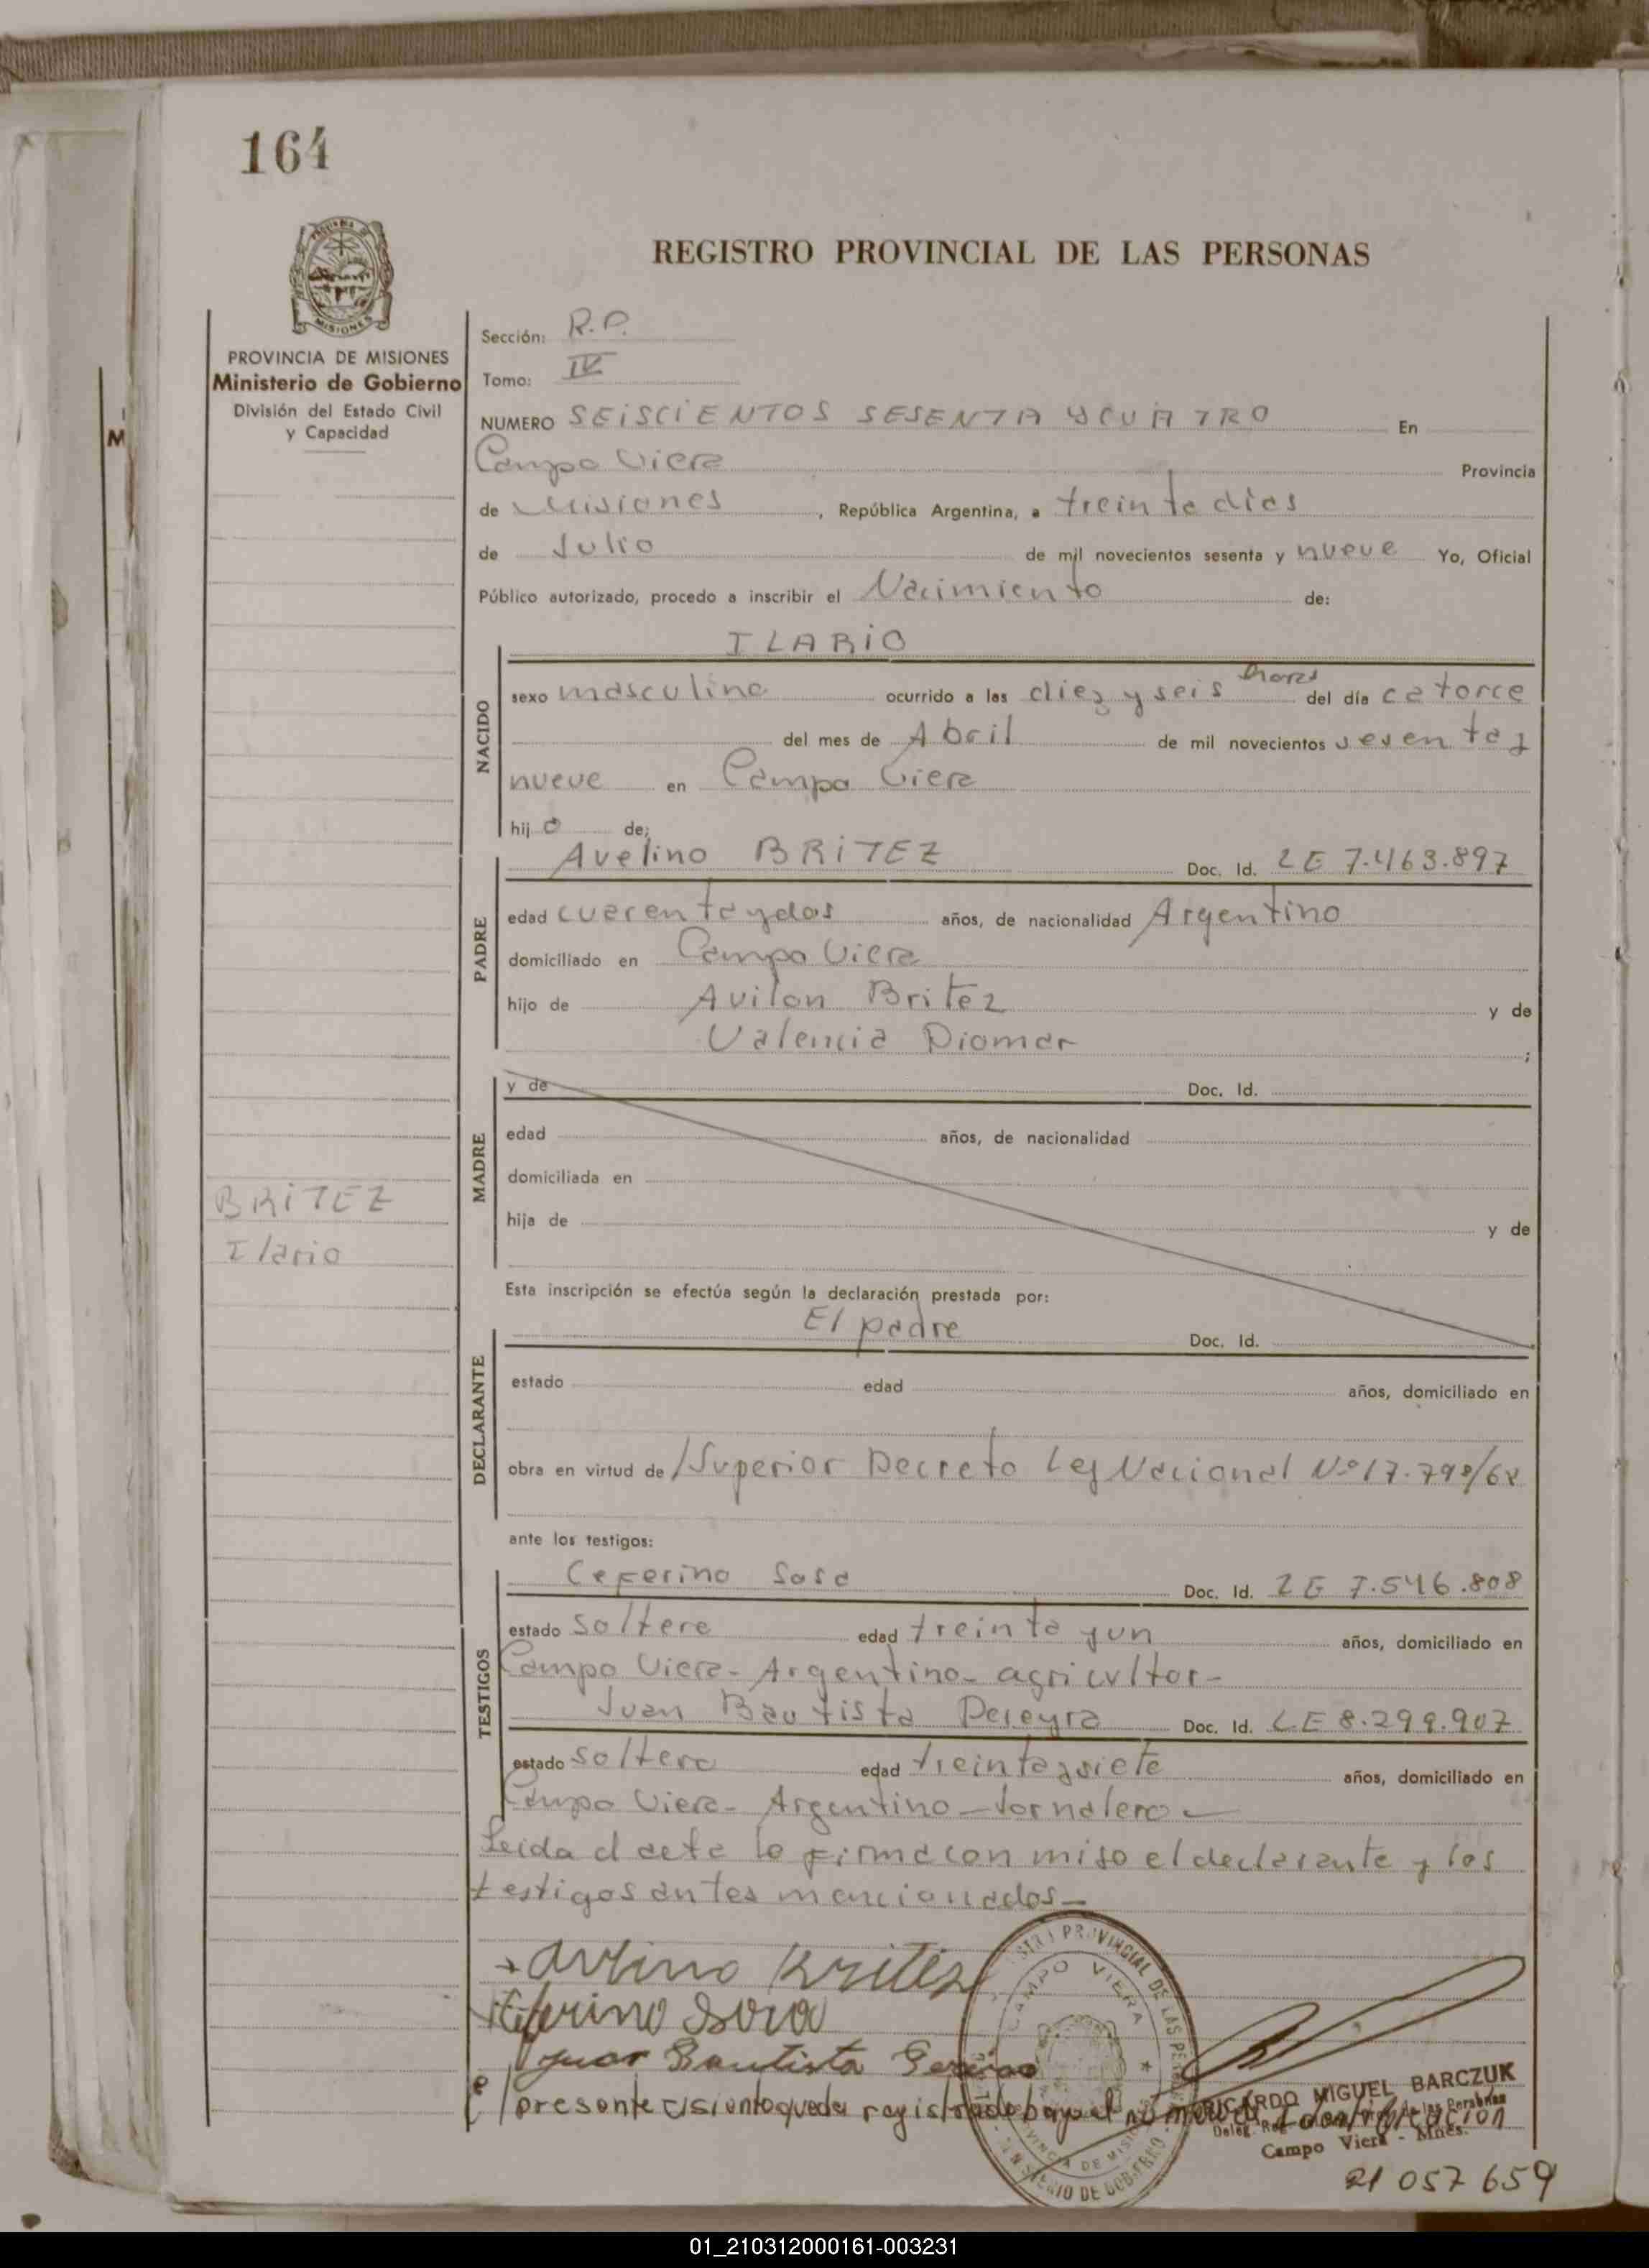 164
REGISTRO PROVINCIAL DE LAS PERSONAS
MISIONES
PROVINCIA DE MISIONES
Ministerio de Gobierno
División del Estado Civil
y Capacidad
Sección: R.P.
Tomo: IV
NUMERO SEISCIENTOS SESENTA Y CUATRO En
Campo Viera Provincia
de Misiones, República Argentina, a treinta dias
de Julio de mil novecientos sesenta y nueve Yo, Oficial
Público autorizado, procedo a inscribir el Nacimiento de:
ILARIO
NACIDO
sexo masculino ocurrido a las diez y seis horas del día catorce
del mes de Abril de mil novecientos sesenta y
nueve en Campo Viera
hijo de;
PADRE
Avelino BRITEZ Doc. Id. LE 7.463.897
edad cuarenta y dos años, de nacionalidad Argentino
domiciliado en Campo Viera
hijo de Avilon Britez y de
Valencia Diomar;
MADRE
y de Doc. Id.
edad años, de nacionalidad
domiciliada en
hija de y de
BRITEZ
Ilario
Esta inscripción se efectúa según la declaración prestada por:
DECLARANTE
El padre Doc. Id.
estado edad años, domiciliado en
obra en virtud de /Superior Decreto Ley Nacional Nº 17.
ante los testigos:
TESTIGOS
Ceferino Sosa Doc. Id. LE 7.546.808
estado soltero edad treinta y un años, domiciliado en
Campo Viera - Argentino - agricultor -
Juan Bautista Pereyra Doc. Id. LE 8.299.907
estado soltero edad treinta y siete años, domiciliado en
Campo Viera - Argentino - Jornalero -
Leida el acta la firma con migo el declarante y los
testigos antes mencionados -
Avelino Britez
Ceferino Sosa
Juan Bautista
PROVINCIAL DE LAS
CAMPO VIERA
PROVINCIA DE MISIONES
MINISTERIO DE GOBIERNO
RICARDO MIGUEL BARCZUK
Campo Viera - Mnes.
presente asiento queda registrado bajo el número Identificación
21 057 659
01_210312000161-003231